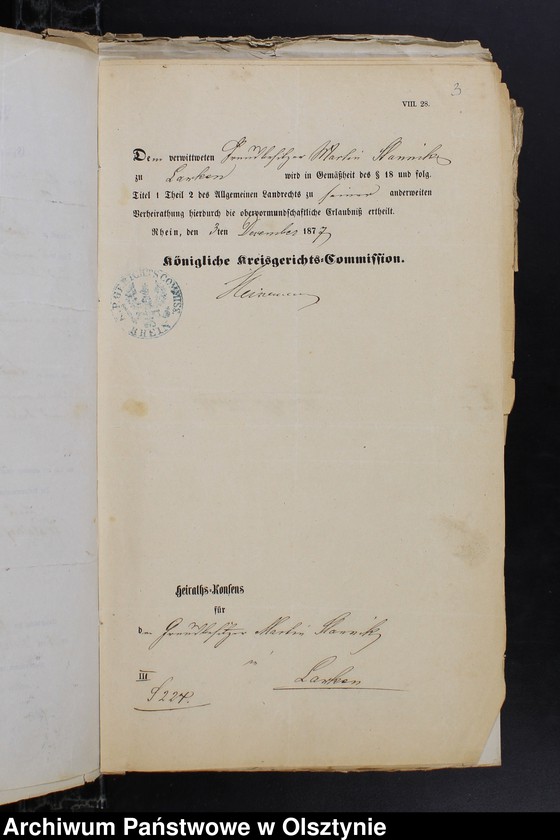 3
VIII. 28.
Dem verwittweten Grundbesitzer Martin
zu Larken wird in Gemäßheit des § 18 und folg.
Titel 1 Theil 2 des Allgemeinen Landrechts zu seiner anderweiten
Verheirathung hierdurch die obervormundschaftliche Erlaubniß ertheilt.
Rhein, den 3ten Dezember 1877
Königliche Kreisgerichts-Commission.
RHEIN
Heiraths-Konsens
für
den Grundbesitzer Martin
in
Larken
III
S 224.
Archiwum Państwowe w Olsztynie